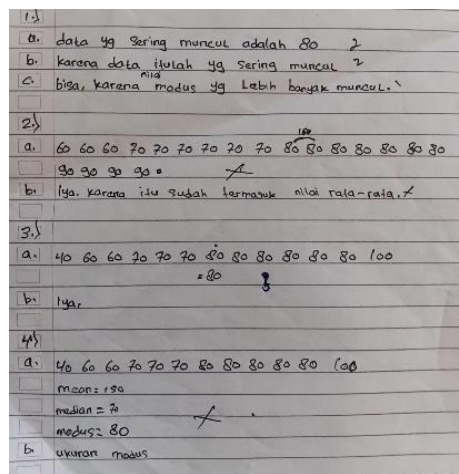 1.)
a. data yg sering muncul adalah 80 2
b. karena data itulah yg sering muncul 2
nilai
c. bisa, karena modus yg lebih banyak muncul.
2.)
160
a. 60 60 60 70 70 70 70 70 70 80 80 80 80 80 80 80
90 90 90 90
b. Iya. karena itu sudah termasuk nilai rata-rata.
3.)
a. 40 60 60 70 70 70 80 80 80 80 80 80 80 100
= 80
b. Iya,
4)
a. 40 60 60 70 70 70 80 80 80 80 80 80 100
mean = 150
median = 70
modus = 80
b. ukuran modus